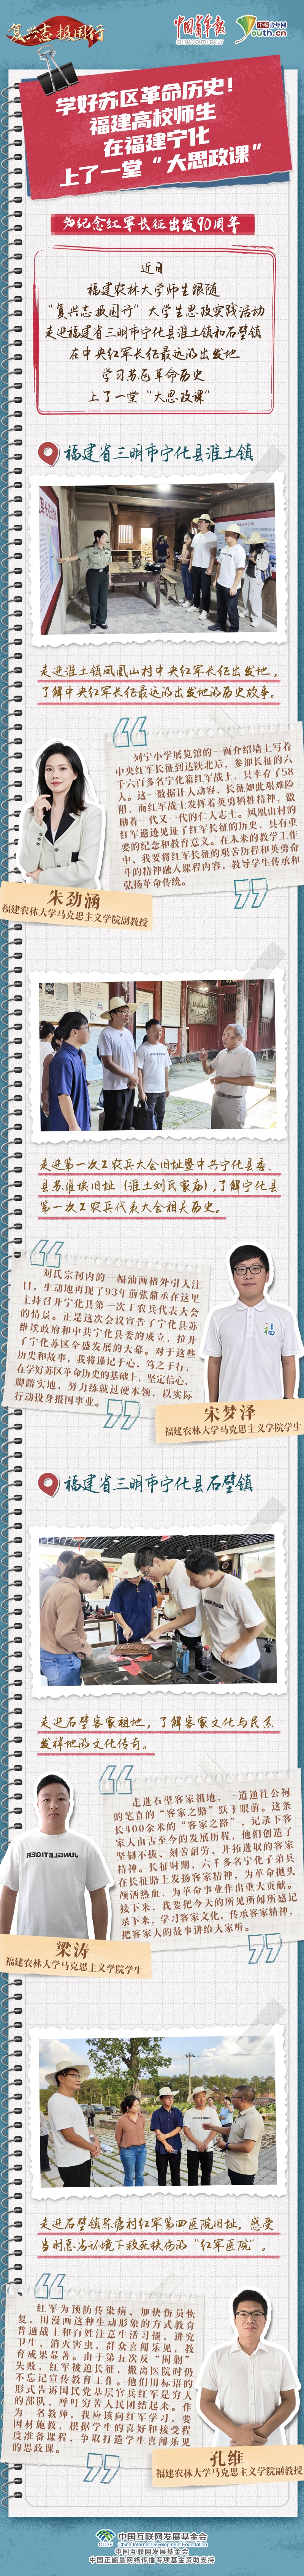 复兴志 报国行
中国青年报
CHINA YOUTH DAILY
中国青年网
Youth.cn
学好苏区革命历史！
福建高校师生
在福建宁化
上了一堂“大思政课”
为纪念红军长征出发90周年
近日
福建农林大学师生跟随
“复兴志 报国行”大学生思政实践活动
走进福建省三明市宁化县淮土镇和石壁镇
在中央红军长征最远的出发地
学习苏区革命历史
上了一堂“大思政课”
福建省三明市宁化县淮土镇
走进淮土镇凤凰山村中央红军长征出发地，
了解中央红军长征最远的出发地的历史故事。
列宁小学展览馆的一面介绍墙上写着
中央红军长征到达陕北后，参加长征的六
千六百多名宁化籍红军战士，只幸存了58
人。这一数据让人动容，长征如此艰难险
阻，而红军战士发挥着英勇牺牲精神，激
励着一代又一代的仁人志士。凤凰山村的
红军道遗见证了红军长征的历史，具有重
要的纪念和教育意义。在未来的教学工作
中，我要将红军长征的艰苦历程和英勇奋
斗的精神融入课程内容，教导学生传承和
弘扬革命传统。
朱劲涵
福建农林大学马克思主义学院副教授
走进第一次工农兵大会旧址暨中共宁化县委、
县苏维埃旧址（淮土刘氏家庙），了解宁化县
第一次工农兵代表大会相关历史。
刘氏宗祠内的一幅油画格外引人注
目，生动地再现了93年前张鼎丞在这里
主持召开宁化县第一次工农兵代表大会
的情景。正是这次会议宣告了宁化县苏
维埃政府和中共宁化县委的成立，拉开
了宁化苏区全盛发展的大幕。对于这些
历史和故事，我将谨记于心，笃之于行，
在学好苏区革命历史的基础上，坚定信心，
脚踏实地，努力练就过硬本领，以实际
行动投身报国事业。
福
宋梦泽
福建农林大学马克思主义学院学生
福建省三明市宁化县石壁镇
走进石壁客家祖地，了解客家文化与民系
发祥地的文化传奇。
走进石壁客家祖地，一道通往公祠
的笔直的“客家之路”跃于眼前。这条
长400余米的“客家之路”，记录下客
家人由古至今的发展历程，他们创造了
坚韧不拔、刻苦耐劳、开拓进取的客家
精神。长征时期，六千多名宁化子弟兵
在长征路上发扬客家精神，为革命抛头
颅洒热血，为革命事业作出重大贡献。
接下来，我要把今天的所见所闻所感记
录下来，学习客家文化，传承客家精神，
把客家人的故事讲给大家听。
JUNGLETIGER
梁涛
福建农林大学马克思主义学院学生
走进石壁镇陈塘村红军第四医院旧址，感受
当时恶劣环境下救死扶伤的“红军医院”。
红军为预防传染病、加快伤员恢
复，用漫画这种生动形象的方式教育
普通战士和百姓注意生活习惯，讲究
卫生、消灭害虫，群众喜闻乐见，教
育成果显著。由于第五次反“围剿”
失败，红军被迫长征，撤离医院时仍
不忘记宣传教育工作。他们用标语的
形式告诉国民党基层官兵红军是穷人
的部队，呼吁穷苦人民团结起来。作
为一名教师，我应该向红军学习，要
因材施教，根据学生的喜好和接受程
度准备课程，争取打造学生喜闻乐见
的思政课。
孔维
福建农林大学马克思主义学院副教授
中国互联网发展基金会
China Internet Development Foundation
中国互联网发展基金会
中国正能量网络传播专项基金资助支持